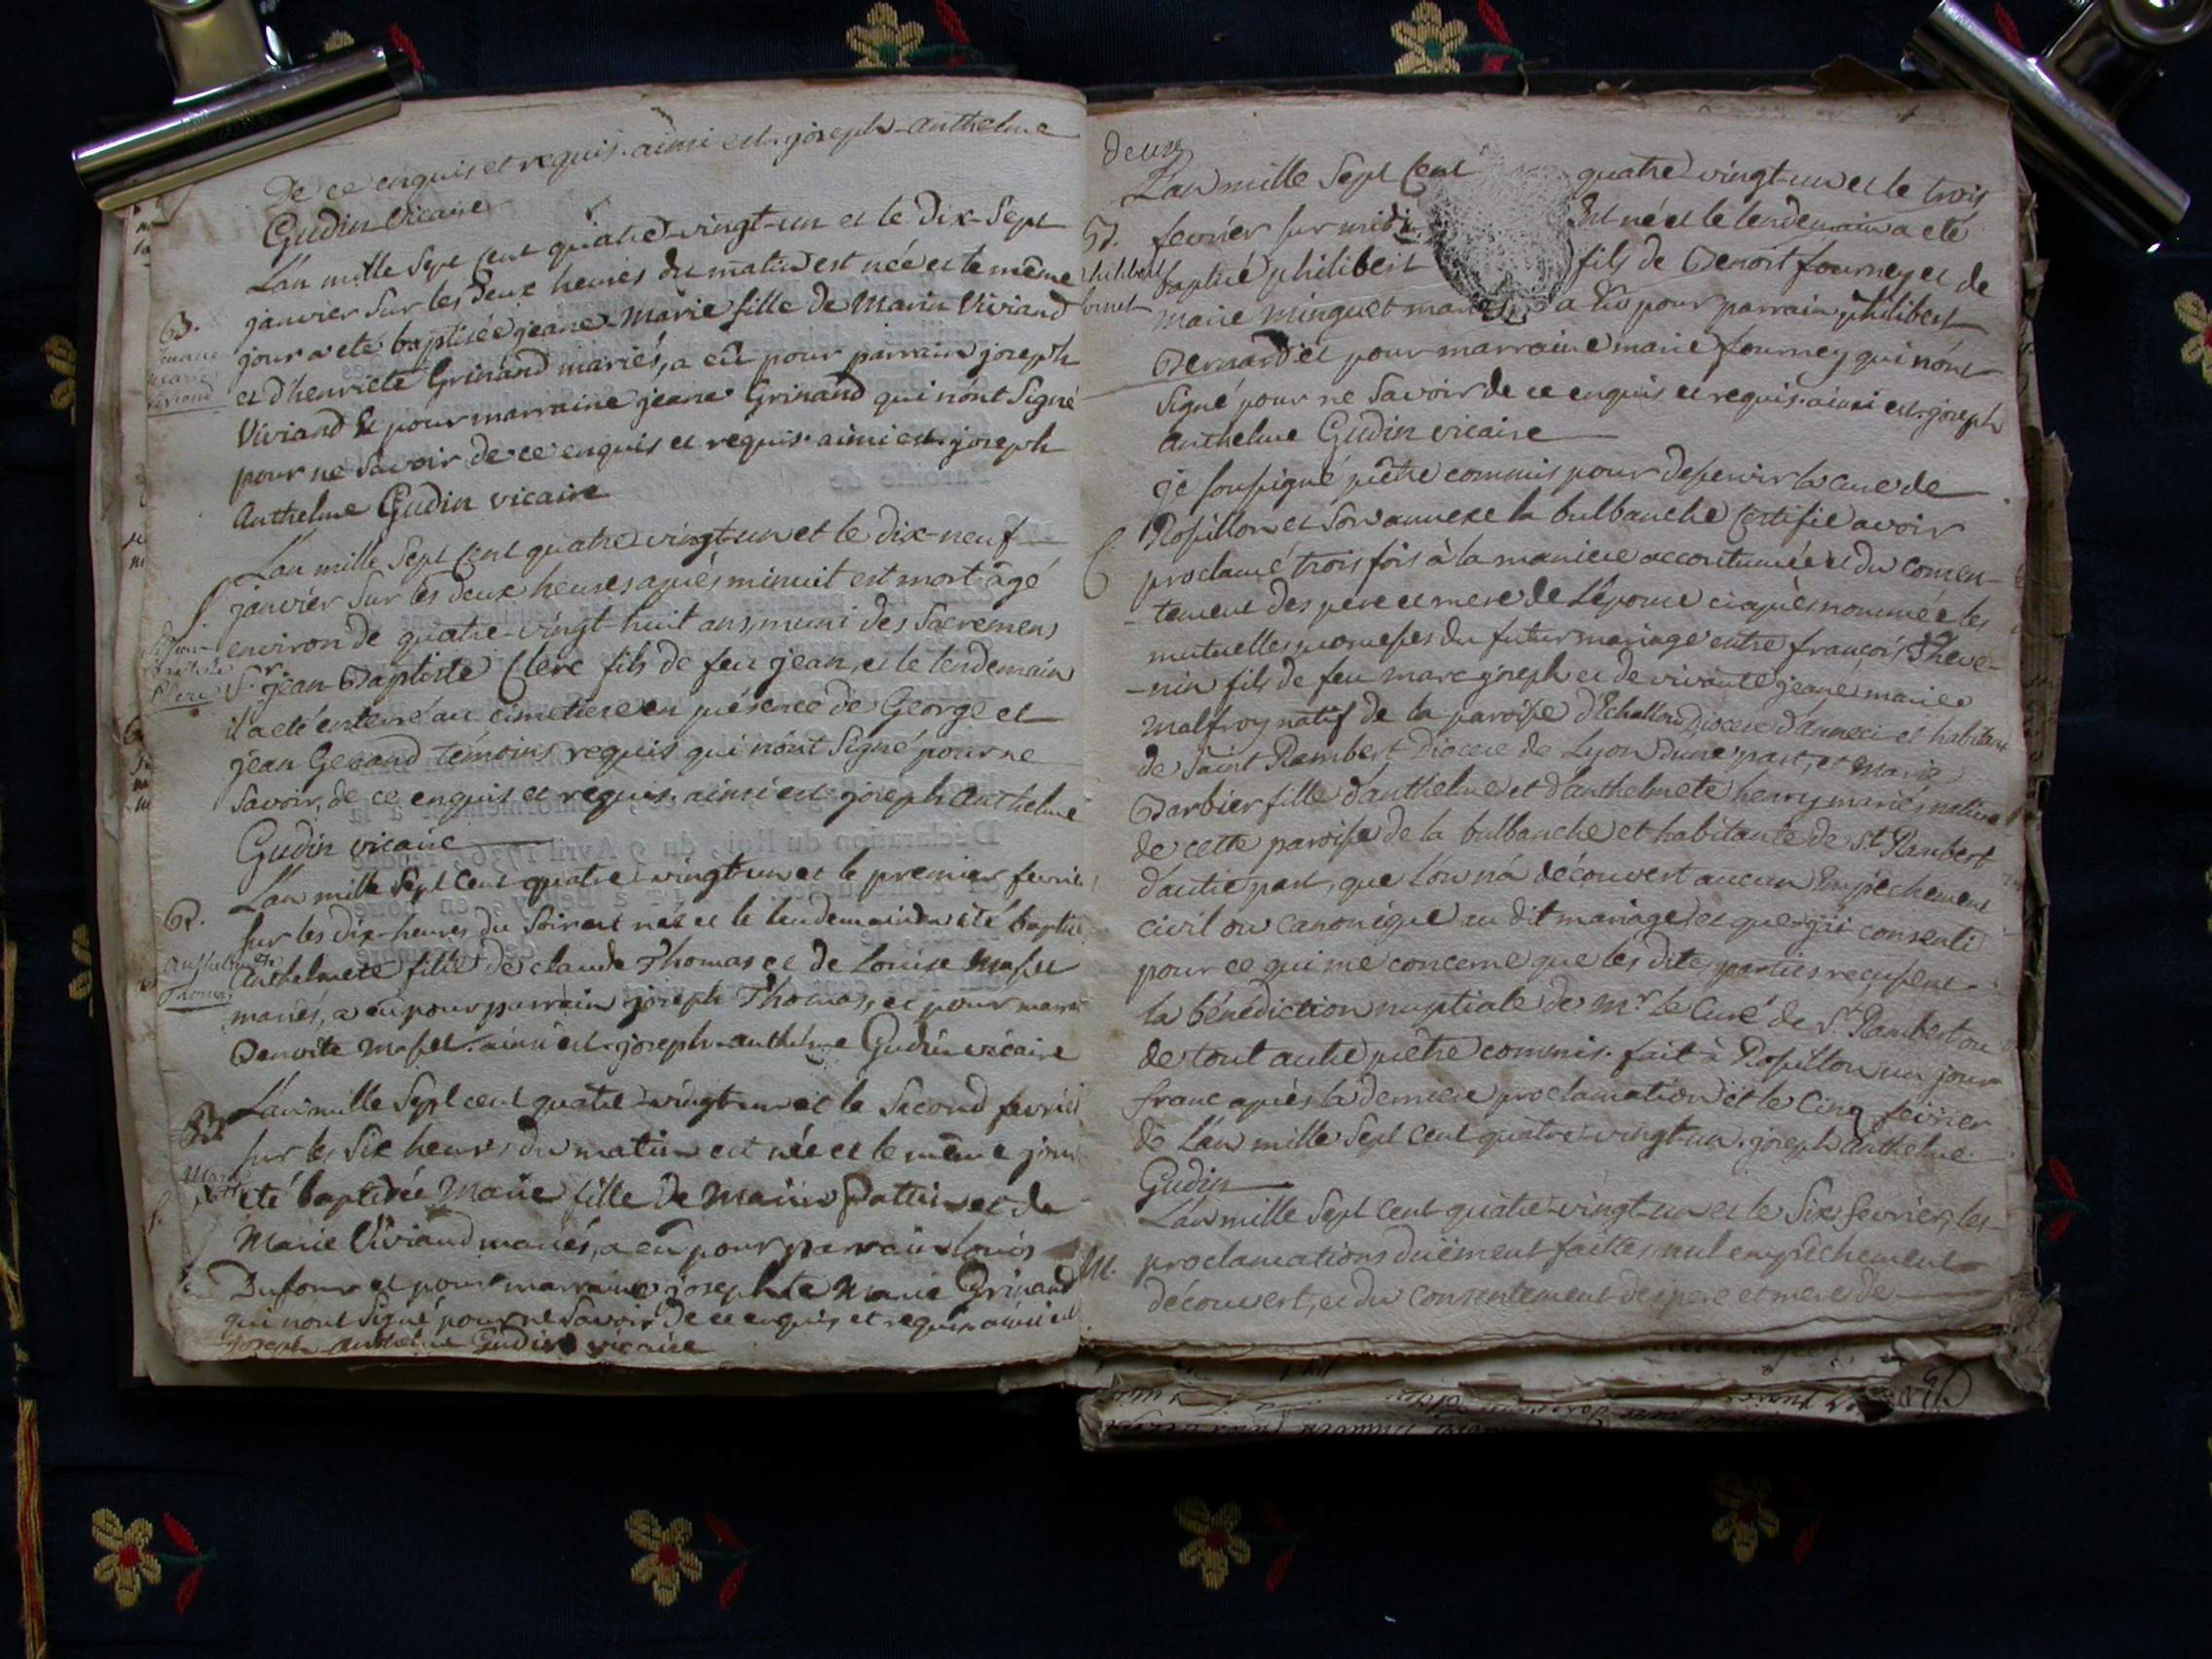 De ce enquis et requis. ainsi est. joseph-anthelme
Gudin vicaire
L'an mille sept cent quatre-vingt-un et le dix-sept
janvier sur les deux heures du matin est née et le même
jour a eté baptisée jeane-Marie fille de Marin Viviand
et d'henriete Grinand mariés, a eû pour parrain joseph
Viviand et pour marraine jeane Grinand qui n'ont signé
pour ne savoir de ce enquis et requis. ainsi est. joseph
Anthelme Gudin vicaire
B.
jeanne
marie
viviand
L'an mille sept cent quatre vingt-un et le dix-neuf
janvier sur les deux heures après minuit est mort âgé
environ de quatre-vingt-huit ans, muni des Sacremens
Sr. jean-Baptiste Clerc fils de feu jean, et le lendemain
il a eté enterré au cimetiere en présence de George et
jean Gerand témoins requis qui n'ont signé pour ne
savoir, de ce enquis et requis. ainsi est. joseph Anthelme
Gudin vicaire
S.
L'an mille sept cent quatre vingt-un et le premier fevrier
sur les dix-heures du soir est née et le lendemain a eté baptisée
anthelmete fille de claude Thomas et de Louise
mariés, a eû pour parrain joseph Thomas, et pour marraine
Benoite ainsi est. joseph-anthelme Gudin vicaire
B.
Anthelmete
Thomas
L'an mille sept cent quatre-vingt-un et le second fevrier
sur les six heures du matin est née et le même jour
eté baptisée Marie fille de Marin et de
Marie Viviand mariés, a eû pour parrain louis
Dufour et pour marraine josephte Marie Grinand
qui n'ont signé pour ne savoir de ce enquis et requis ainsi est
joseph anthelme Gudin vicaire
B.
Marie
deux
L'an mille sept cent quatre vingt-un et le trois
fevrier sur midi est né et le lendemain a eté
baptisé philibert fils de Benoit fourney et de
marie minguet mariés, a eû pour parrain philibert
Bernard et pour marraine marie fourney qui n'ont
signé pour ne savoir de ce enquis et requis. ainsi est. joseph
anthelme Gudin vicaire
B.
philibert
je soussigné prêtre commis pour desservir la cure de
Rossillon et son annexe la bulbanche certifie avoir
proclamé trois fois à la maniere accoutumée et du consen-
-tement des pere et mere de L'épouse ci après nommée les
mutuelles promesses du futur mariage entre françois Theve-
-nin fils de feu marc joseph et de vivante jeane marie
Malfroy natif de la paroisse d'Echallon Diocese d'anneci et habitant
de Saint Rambert Diocese de Lyon d'une part, et Marie
Barbier fille d'anthelme et d'anthelmete henry mariés native
de cette paroisse de la bulbanche et habitante de St. Rambert
d'autre part, que l'on n'a découvert aucun Empêchement
civil ou canonique au dit mariage, et que j'ai consenti
pour ce qui me concerne que les dites parties reçussent
la bénédiction nuptiale de Mr. le Curé de St. Rambert ou
de tout autre prêtre commis. fait à Rossillon un jour
franc après la derniere proclamation et le cinq fevrier
de L'an mille sept cent quatre-vingt-un. joseph Anthelme
Gudin
L'an mille sept cent quatre-vingt-un et le six fevrier, les
M. proclamations duëment faites, nul empêchement
découvert, et du consentement des pere et mere de